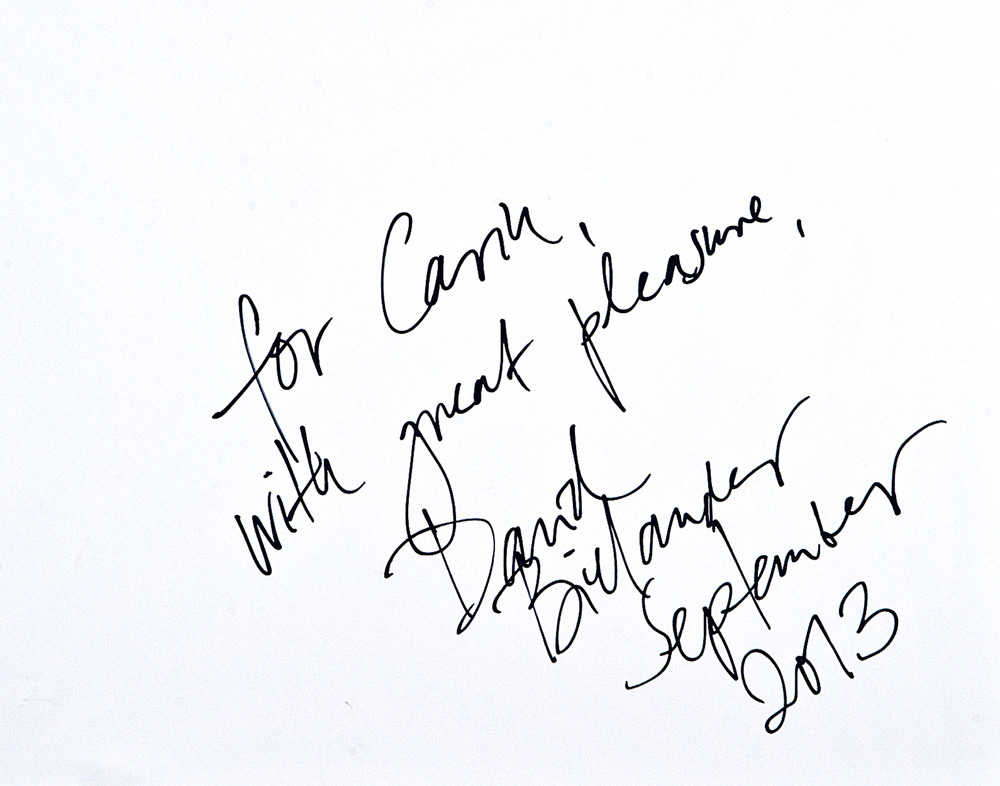 for Carin,
with great pleasure,
David
Bielander
September
2013